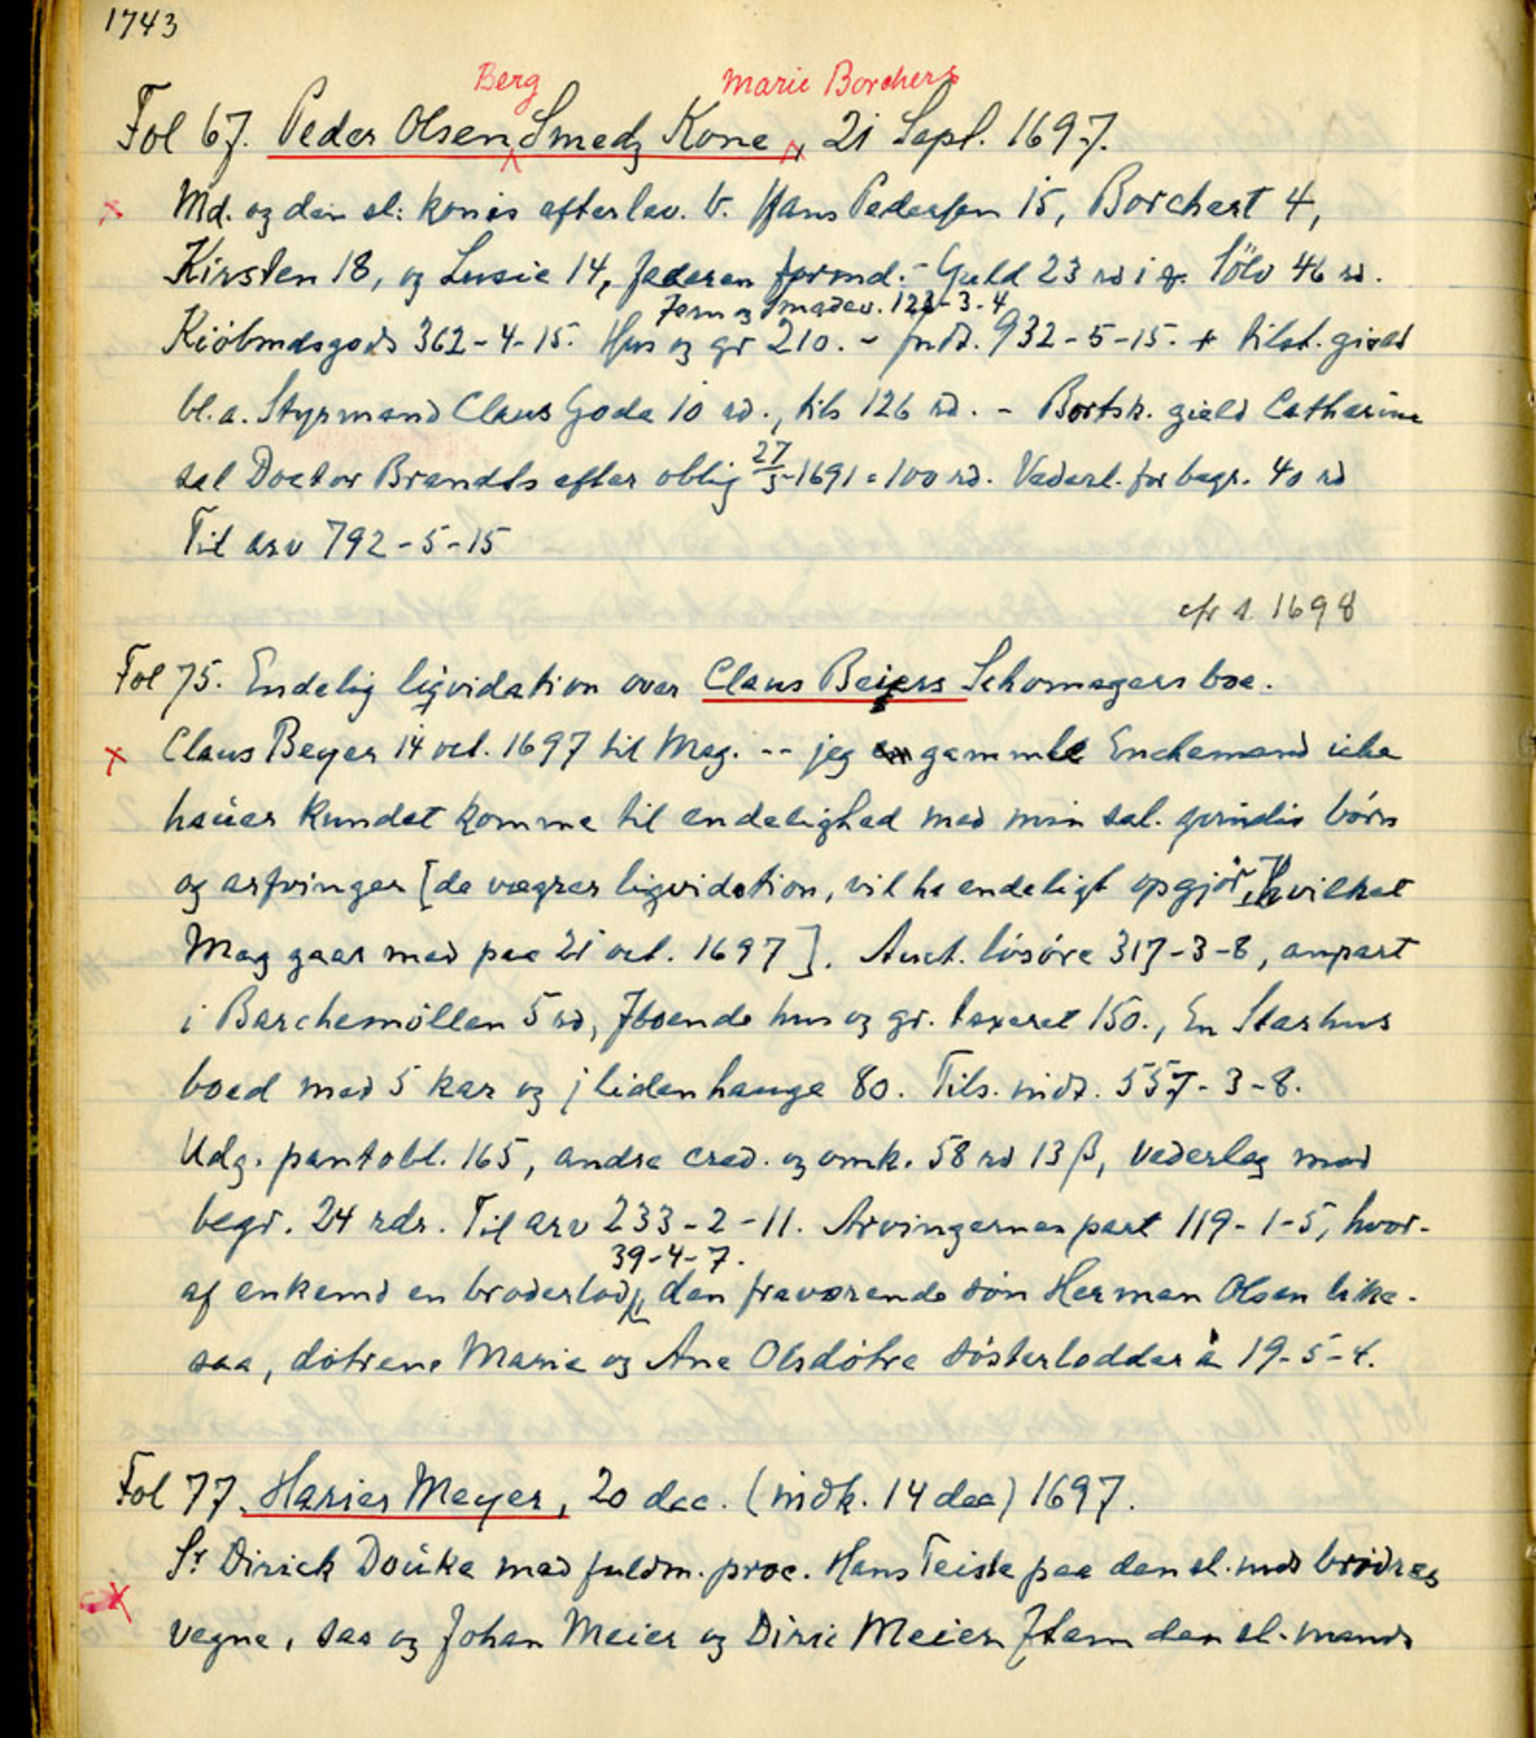 1743
Berg Marie Borchers
Fol 67. Peder Olsen Smeds Kone, 21 Sept. 1697.
Md. og den sl: konis efterlev. b. Hans Pedersen 15, Borchert 4,
Kirsten 18, og Lusie 14, faderen formd. - Guld 23 rd i q. Sölv 46 rd.
Jern og Smaadev. 123-3-4
Kiöbmdsgods 362-4-15. Hus og gr 210. - indt. 932-5-15. + tilst. gield
bl.a. Styrmand Claus Gode 10 rd., tils 126 rd. - Bortsk. gield Catharina
sal Doctor Brandts efter oblig 27/5-1691 = 100 rd. Vederl. for begr. 40 rd
Til arv 792-5-15
cfr s. 1698
Fol 75. Endelig liqvidation over Claus Beiers Schomagers boe.
Claus Beyer 14 oct. 1697 til Mag. -- jeg gammle Enchemand iche
haüer kundet komme til endelighed med min sal. qvindis börn
og arfvinger [de vægrer liqvidation, vil ha endeligt opgjör, hvilket
Mag gaar med paa 21 oct. 1697]. Auct. lösöre 317-3-8, anpart
i Barchemöllen 5 rd, Iboende hus og gr. taxeret 150., En Starhus
boed med 5 kar og j liden hauge 80. Tils. indt. 557-3-8.
Udg. pantobl. 165, andre cred. og omk. 58 rd 13 β, vederlag mod
begr. 24 rdr. Til arv 233-2-11. Arvingernes part 119-1-5, hvor-
39-4-7.
af enkemd en broderlod, den fraværende sön Herman Olsen like-
saa, dötrene Marie og Ane Olsdötre sösterlodder à 19-5-4.
Fol 77. Harier Meyer, 20 dec. (indk. 14 dec) 1697.
Sr Dirick Doüke med fuldm. proc. Hans Teiste paa den sl. mds brödres
vegne, saa og Johan Meier og Diric Meier Item den sl. mands